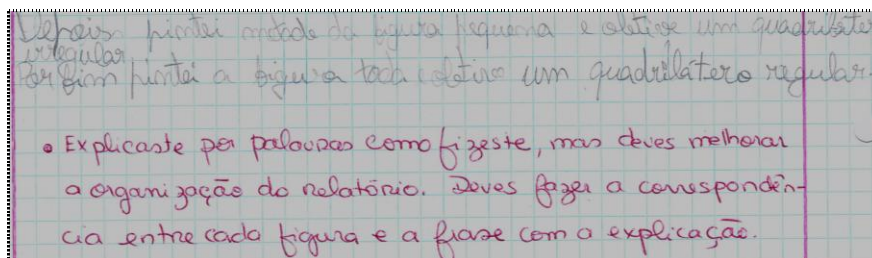 Depois pintei metade da figura pequena e obtive um quadrilátero
irregular
Por fim pintei a figura toda e obtive um quadrilátero regular.
• Explicaste por palavras como fizeste, mas deves melhorar
a organização do relatório. Deves fazer a correspondên-
cia entre cada figura e a frase com a explicação.